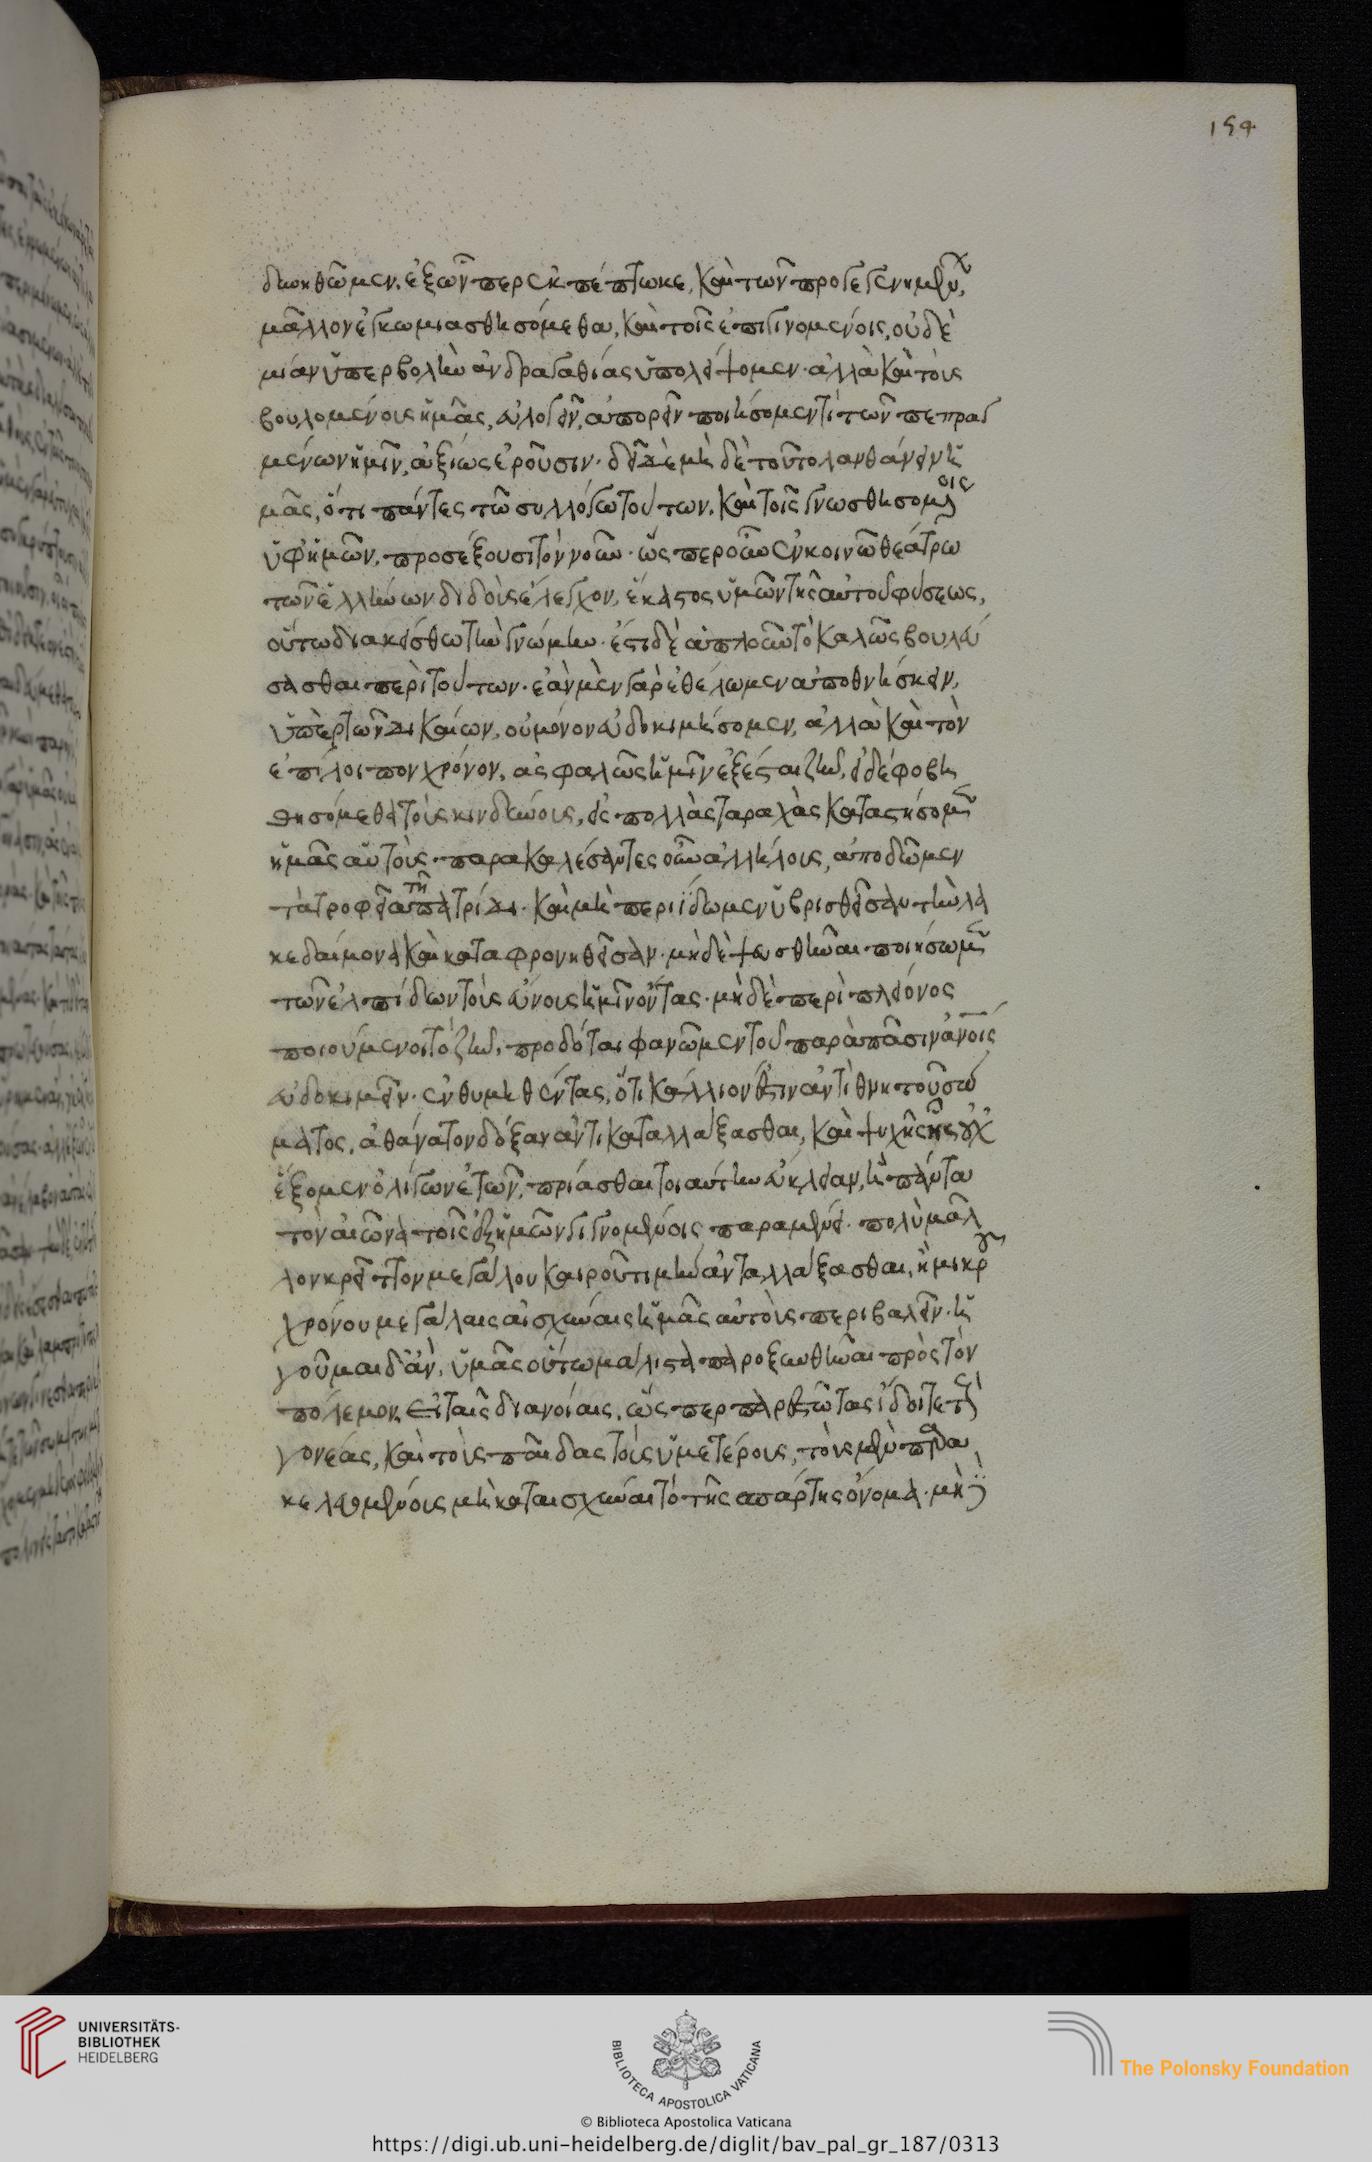 δυνηθῶμεν. ἐξ ὧνπερ ἐκπέπτωκε, καὶ τῶν προγεγενημένων,
μᾶλλον ἐγκωμιασθησόμεθα, καὶ τοῖς ἐπιγινομένοις, οὐδὲ
μίαν ὑπερβολὴν ἀνδραγαθίας ὑπολείψομεν. ἀλλὰ καὶ τοὺς
βουλομένους ἡμᾶς, εὐλογεῖν, ἀπορεῖν ποιήσομεν τί τῶν πεπραγ
μένων ἡμῖν, ἀξίως ἐροῦσιν. δεῖ δὲ μὴ δὲ τοῦτο λανθάνειν ἡ
μᾶς, ὅτι πάντες τῶ συλλόγω τούτων. καὶ τοῖς γνωσθησομένοις
ὑφ' ἡμῶν, προσέξουσι τὸν νοῦν. ὥσπερ οὖν ἐν κοινῶ θεάτρω
τῶν ἑλλήνων διδοὺς ἔλεγχον, ἕκαστος ὑμῶν τῆς αὑτοῦ φύσεως,
οὕτω διακείσθω τὴν γνώμην. ἔστι δὲ ἁπλοῦν τὸ καλῶς βουλεύ
σασθαι περὶ τούτων. ἐὰν μὲν γὰρ ἐθέλωμεν ἀποθνήσκειν,
ὑπὲρ τῶν δικαίων, οὐ μόνον εὐδοκιμήσομεν, ἀλλὰ καὶ τὸν
ἐπίλοιπον χρόνον, ἀσφαλῶς ἡμῖν ἐξέσται ζῆν, εἰ δὲ φοβη
θησόμεθα τοὺς κινδύνους, εἰς πολλὰς ταραχὰς καταστήσομεν
ἡμᾶς αὐτούς. παρακαλέσαντες οὖν ἀλλήλους, ἀποδῶμεν
τὰ τροφεῖα τῆ πατρίδι. καὶ μὴ περιΐδωμεν ὑβρισθεῖσαν τὴν λα
κεδαίμονα καὶ καταφρονηθεῖσαν. μὴ δὲ ψευσθῆναι ποιήσωμεν
τῶν ἐλπίδων τοὺς εὔνους ἡμῖν ὄντας. μὴ δὲ περὶ πλείονος
ποιούμενοι τὸ ζῆν, προδόται φανῶμεν τοῦ παρὰ πᾶσιν ἀνοις
εὐδοκιμεῖν. ἐνθυμηθέντας, ὅτι κάλλιον ἐστὶν ἀντὶ θνητοῦ σώ
ματος, ἀθάνατον δόξαν ἀντικαταλλάξασθαι, καὶ ψυχῆς ἧς οὐχ
ἕξομεν ὀλίγων ἐτῶν, πρίασθαι τοιαύτην εὔκλειαν, ἣ πάντα
τὸν αἰῶνα τοῖς ἐξ ἡμῶν γιγνομένοις παραμένει. πολὺ μᾶλ
λον κρεῖττον μεγάλου καιροῦ τιμὴν ἀνταλλάξασθαι, ἢ μικροῦ
χρόνου μεγάλαις αἰσχύναις ἡμᾶς αὐτοὺς περιβαλεῖν. ἡ
γοῦμαι δ' ἂν, ὑμᾶς οὕτω μάλιστα παροξυνθῆναι πρὸς τὸν
πόλεμον, εἰ ταῖς διανοίαις, ὥσπερ παρεστῶτας ἴδοιτε τοὺς
γονέας, καὶ τοὺς παῖδας τοὺς ὑμετέρους, τοὺς μὲν παρα
κελευομένους μὴ καταισχύναι τὸ τῆς σπάρτης ὄνομα. μὴ δὲ